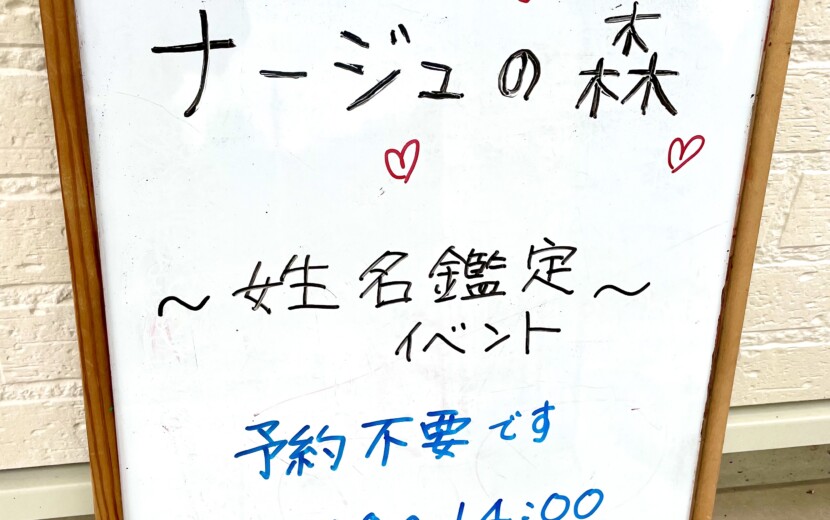 ナージュの森
～姓名鑑定～
イベント
予約不要です
14:00